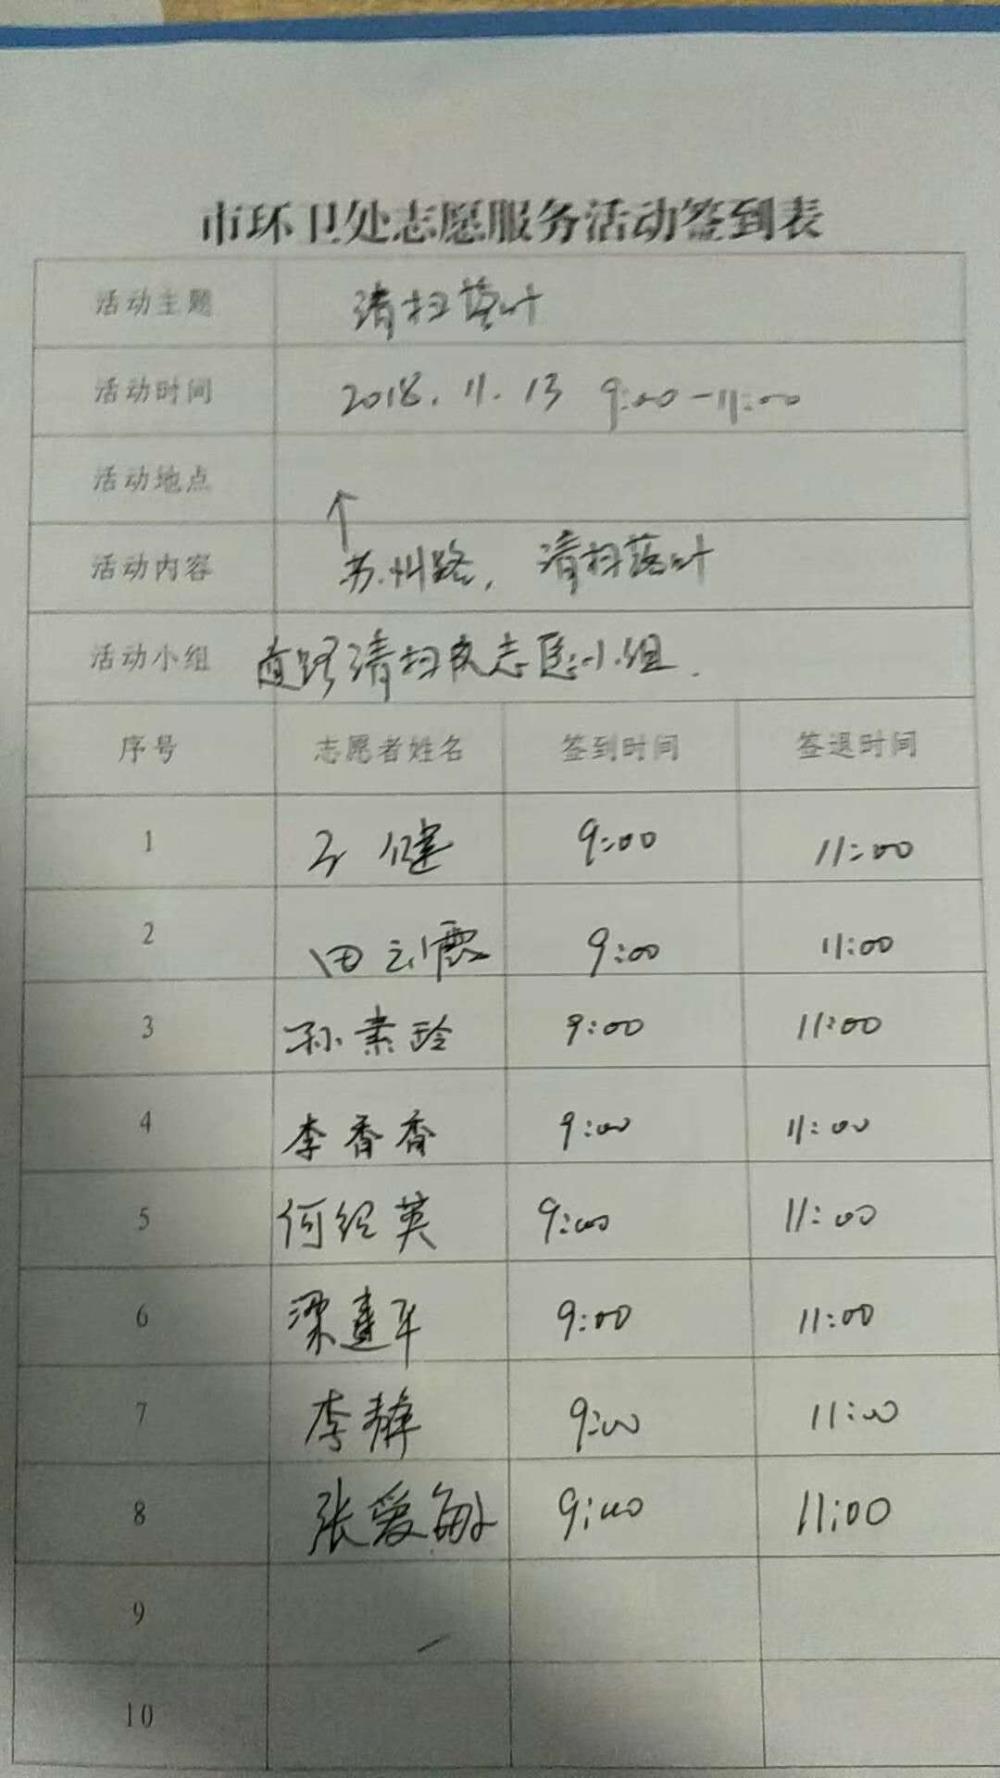 市环卫处志愿服务活动签到表
活动主题 清扫落叶
活动时间 2018.11.13 9:00-11:00
活动地点
活动内容 ↑ 苏州路，清扫落叶
活动小组 道路清扫 志愿小组.
序号 志愿者姓名 签到时间 签退时间
1 健 9:00 11:00
2 田云霞 9:00 11:00
3 孙素玲 9:00 11:00
4 李香香 9:00 11:00
5 何绍英 9:00 11:00
6 梁建军 9:00 11:00
7 李静 9:00 11:00
8 张爱敏 9:00 11:00
9
10